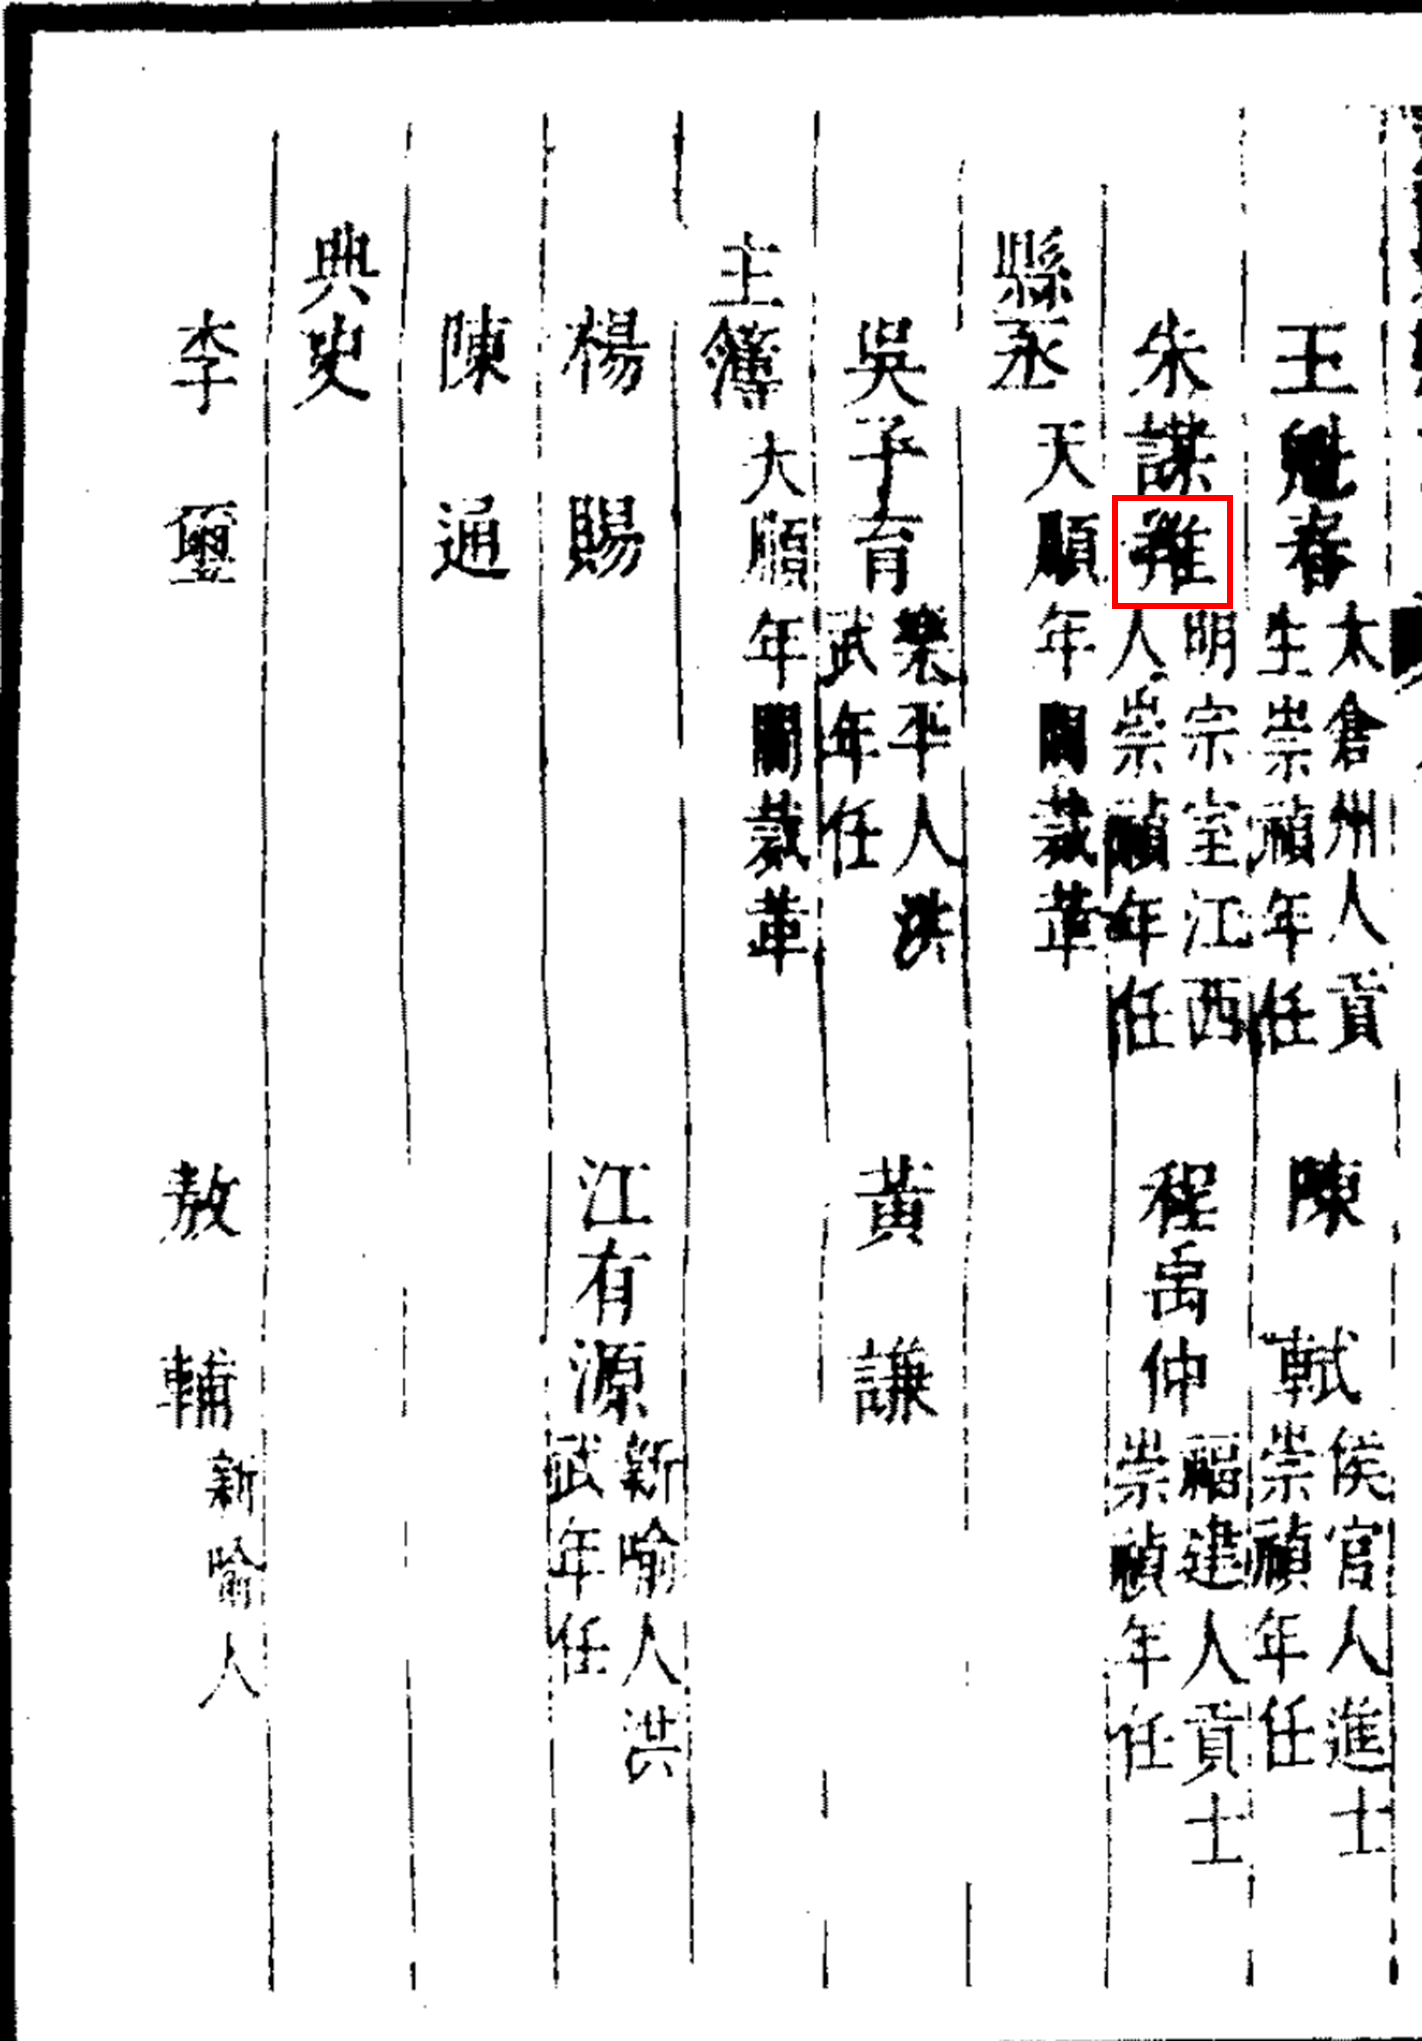 王魁春太倉州人貢
生崇禎年任
陳軾侯官人進士
崇禎年任
朱謀明宗室江西
人崇禎年任
程禹仲福建人貢士
崇禎年任
縣丞天順年間裁革
吳子育樂平人洪
武年任
黃謙
主簿大順年間裁革
楊賜
江有源新喻人洪
武年任
陳通
典史
李璽
敖輔新喻人